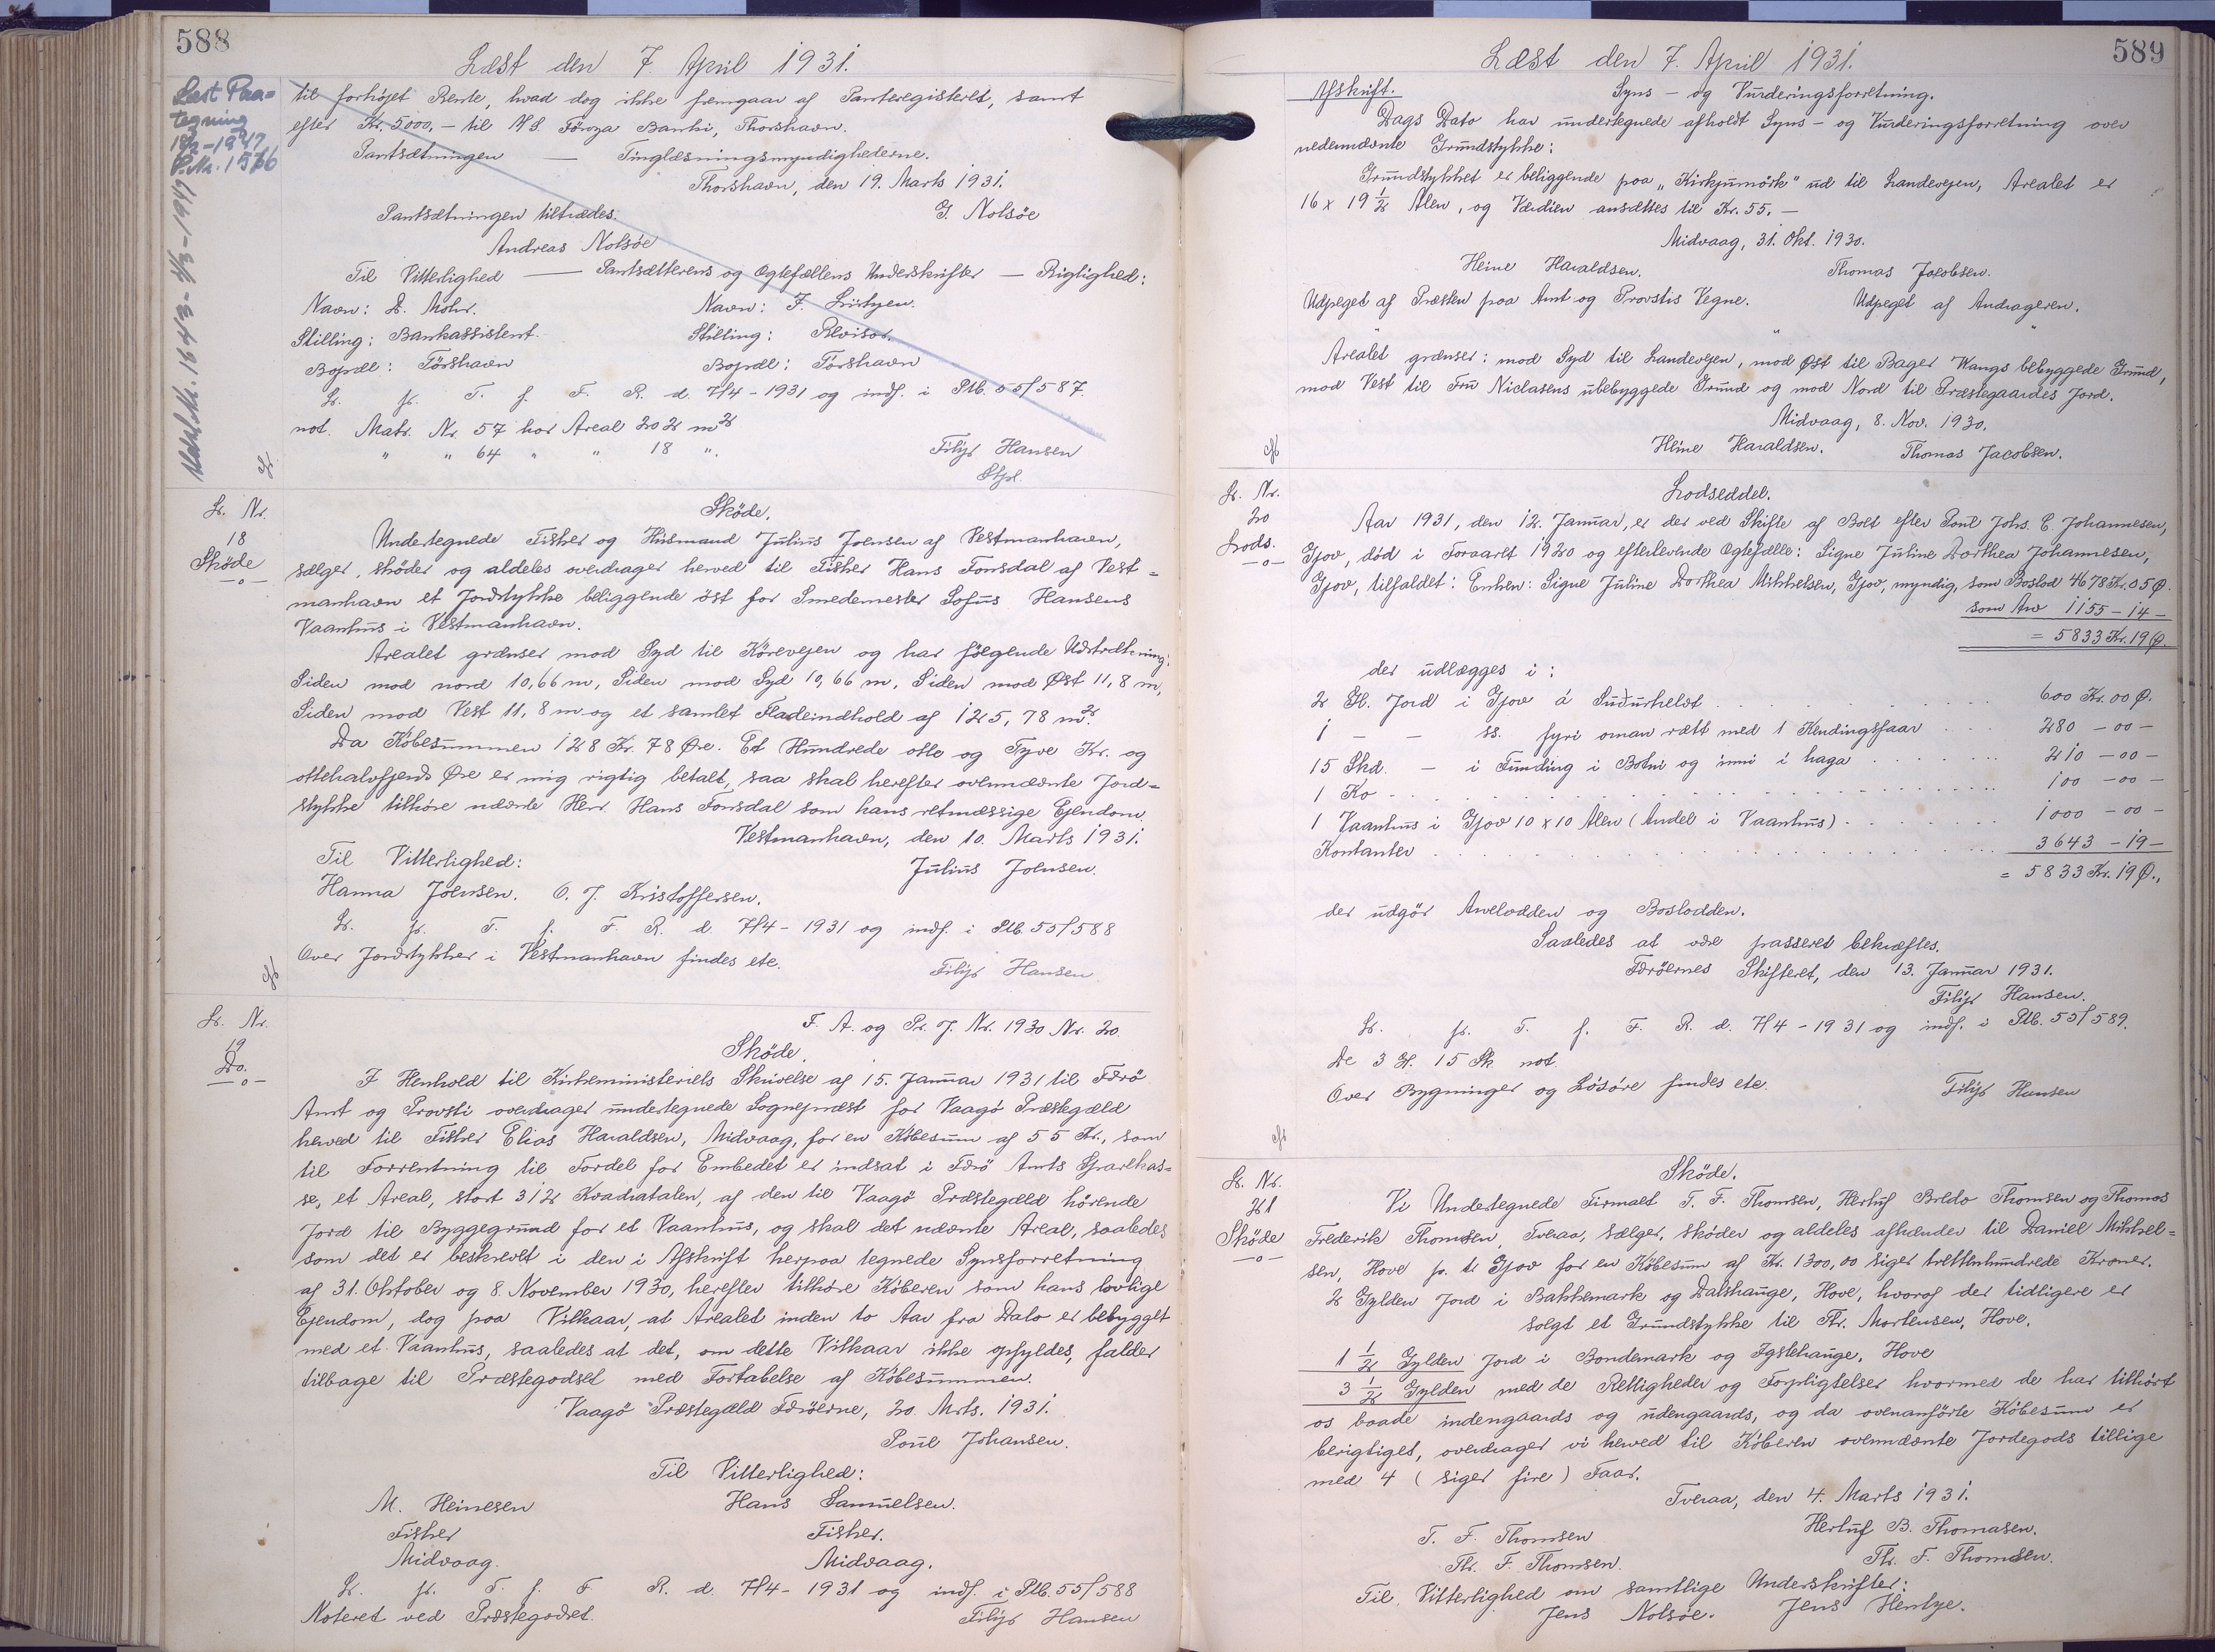 588
Læst den 7. April 1931.
Læst Paa-
tegning
P.Nr. 1576
til forhøjet Rente, hvad dog ikke fremgaar af Panteregisteret, samt
efter Kr. 5000,- til A/S. Föroya Banki, Thorshavn.
Pantsætningen — Tinglæsningsmyndighederne.
Thorshavn, den 19. Marts 1931.
Pantsætningen tiltrædes. G. Nolsöe
Andreas Nolsöe
Til Vitterlighed — Pantsætterens og Ægtefællens Underskrifter — Rigtighed:
Navn: D. Mohr. Navn: F. Listyen.
Stilling: Bankassistent. Stilling: Revisor.
Bopæl: Tórshavn Bopæl: Tórshavn
L. p. T. f. F. R. d. 7/4-1931 og indf. i Ptb. 55/587.
not. Matr. Nr. 57 har Areal 202 m2
" " 64 " " 18 ".
Filip Hansen
Stpl.
L. Nr.
18
Sköde
—o—
Sköde.
Undertegnede Fisker og Húsmand Július Joensen af Vestmanhavn,
sælger, sköder og aldeles overdrager herved til Fisker Hans Fonsdal af Vest=
manhavn et Jordstykke beliggende öst for Smedemester Sofus Hansens
Vaanhús i Vestmanhavn.
Arealet grænser mod Syd til Körevejen og har fölgende Udstrækning:
Siden mod nord 10,66 m, Siden mod Syd 10,66 m, Siden mod Øst 11,8 m,
Siden mod Vest 11,8 m og et samlet Fladeindhold af 125,78 m2.
Da Köbesummen 128 Kr. 78 Øre. Et Hundrede otte og Tyve Kr. og
ottehalvfjerds Øre er mig rigtig betalt, saa skal herefter ovennævnte Jord=
stykke tilhöre nævnte Herr. Hans Fonsdal som hans retmæssige Ejendom.
Vestmanhavn, den 10. Marts 1931.
Til Vitterlighed: Július Joensen.
Hanna Joensen. O. J. Kristoffersen.
L. p. T. f. F. R. d. 7/4-1931 og indf. i Ptb. 55/588
Over Jordstykker i Vestmanhavn findes etc.
Filip Hansen.
L. Nr.
19
Do.
—o—
F. A. og Pr. J. Nr. 1930 Nr. 20.
Sköde.
I Henhold til Kirkeministeriets Skrivelse af 15. Januar 1931 til Færö
Amt og Provsti overdrager undertegnede Sognepræst for Vaagö Præstegæld
herved til Fisker Elias Haraldsen, Midvaag, for en Köbesum af 55 Kr., som
til Forrentning til Fordel for Embedet er indsat i Færö Amts Sparekas=
se, et Areal, stort 312 Kvadratalen, af den til Vaagö Præstegæld hörende
Jord til Byggegrund for et Vaanhús, og skal det nævnte Areal, saaledes
som det er beskrevet i den i Afskrift herpaa tegnede Synsforretning
af 31. Oktober og 8. November 1930, herefter tilhöre Köberen som hans lovlige
Ejendom, dog paa Vilkaar, at Arealet inden to Aar fra Dato er bebygget
med et Vaanhús, saaledes at det, om dette Vilkaar ikke opfyldes, falder
tilbage til Præstegodset med Fortabelse af Köbesummen.
Vaagö Præstegæld Færöerne, 20. Mrts. 1931.
Poul Johansen.
Til Vitterlighed:
M. Heinesen Hans Samuelsen.
Fisker Fisker.
Midvaag. Midvaag.
L. p. T. f. F. R. d. 7/4-1931 og indf. i Ptb. 55/588
Noteret ved Præstegodset. Filip Hansen
589
Læst den 7. April 1931.
Afskrift. Syns- og Vurderingsforretning.
Dags Dato har undertegnede afholdt Syns- og Vurderingsforretning over
nedennævnte Grundstykke:
Grundstykket er beliggende paa „Kirkjumörk" ud til Landevejen, Arealet er
16 x 19 1/2 Alen, og Værdien ansættes til Kr. 55,—
Midvaag, 31. Okt. 1930.
Heine Haraldsen. Thomas Jacobsen.
Udpeget af Præsten paa Amt og Provstis Vegne. Udpeget af Andrageren.
Arealet grænser: mod Syd til Landevejen, mod Øst til Bager Wangs bebyggede Grund,
mod Vest til Fru Niclasens ubebyggede Grund og mod Nord til Præstegaardes Jord.
Midvaag, 8. Nov. 1930.
Heine Haraldsen. Thomas Jacobsen.
L. Nr.
20
Lods.
—o—
Lodseddel.
Aar 1931, den 12. Januar, er der ved Skifte af Boet efter Poul Johs. C. Johannesen,
Gjov, död i Foraaret 1920 og efterlevende Ægtefælle: Signe Juline Dorthea Johannesen,
Gjov, tilfaldet: Enken: Signe Juline Dorthea Mikkelsen, Gjov, myndig, som Boslod 4678 Kr. 05 Ø.
som Arv 1155 - 14 -
= 5833 Kr. 19 Ø.
der udlægges i:
2 Gl. Jord i Gjov á Suðurhelvt . . . 600 Kr. 00 Ø.
1 - - ss. fyri oman rætt med 1 Kendingsfaar . . . 280 - 00 -
15 Skd. - i Funding i Botni og inni i haga . . . 210 - 00 -
1 Ko . . . 100 - 00 -
1 Vaanhús i Gjov 10 x 10 Alen (Andel i Vaanhús) . . . 1000 - 00 -
Kontanter . . . 3643 - 19 -
= 5833 Kr. 19 Ø.,
der udgör Arvelodden og Boslodden.
Saaledes at være passeret bekræftes.
Færöernes Skifteret, den 13. Januar 1931.
Filip Hansen.
L. p. T. f. F. R. d. 7/4-1931 og indf. i Ptb. 55/589.
De 3 Gl. 15 Sk not.
Over Bygninger og Lösöre findes etc. Filip Hansen
L. Nr.
21
Sköde
—o—
Sköde.
Vi Undertegnede Firmaet T. F. Thomsen, Herluf Bredo Thomsen og Thomas
Frederik Thomsen, Tveraa, sælger, sköder og aldeles afhænder til Daniel Mikkel=
sen, Hove p. t. Gjov for en Köbesum af Kr. 1300,00 siger trettenhundrede Kroner.
2 Gylden Jord i Bakkemark og Dalshauge, Hove, hvoraf der tidligere er
solgt et Grundstykke til Fr. Mortensen, Hove.
1 1/2 Gylden Jord i Bondemark og Ygstehauge, Hove
3 1/2 Gylden med de Rettigheder og Forpligtelser hvormed de har tilhört
os baade indengaards og udengaards, og da ovenanförte Köbesum er
berigtiget, overdrager vi herved til Köberen ovennævnte Jordegods tillige
med 4 (siger fire) Faar.
Tveraa, den 4. Marts 1931.
T. F. Thomsen Herluf B. Thomsen.
Th. F. Thomsen. Th. F. Thomsen.
Til Vitterlighed om samtlige Underskrifter:
Jens Nolsöe. Jens Hentze.